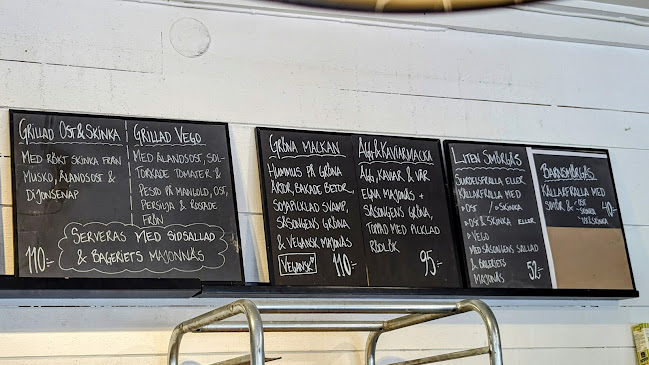 GRILLAD OST & SKINKA
MED RÖKT SKINKA FRÅN
MUSKÖ, ÅLANDSOST &
DIJONSENAP
GRILLAD VEGO
MED ÅLANDSOST, SOL-
TORKADE TOMATER &
PESTO PÅ MANDLOLJ, OST,
PERSILJA & ROSTADE
FRÖN
SERVERAS MED SIDSALLAD
& BAGERIETS MAJONNÄS
110:-
GRÖNA MACKAN
HUMMUS PÅ GRÖNA
ÄRTOR, BAKADE BETOR,
SOJAPICKLAD SVAMP,
SÄSONGENS GRÖNA
& VEGANSK MAJONÄS
VEGANSK!
110:-
ÄGG & KAVIARMACKA
ÄGG, KAVIAR & VÅR
EGNA MAJONÄS +
SÄSONGENS GRÖNA,
TOPPAD MED PICKLAD
RÖDLÖK
95:-
LITEN SMÖRGÅS
SURDEGSFRALLA ELLER
KÄLLARFRALLA MED
OST / SKINKA
OST & SKINKA ELLER
VEGO
MED SÄSONGENS SALLAD
& BAGERIETS
MAJONÄS
52:-
BARNSMÖRGÅS
KÄLLARFRALLA MED
SMÖR & - OST
- SKINKA
- OST & SKINKA